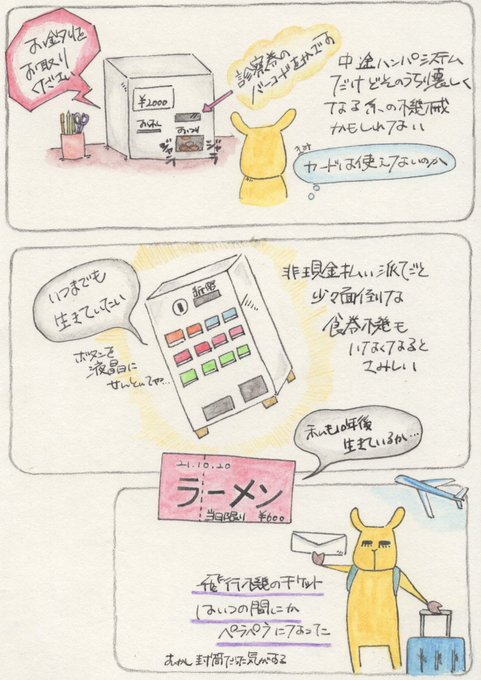 お釣りを
お取り
ください
¥2000
おさつ
おつり
ジャラ
ジャラ
診察券の
バーコードをかざす
中途ハンパシステム
だけどそのうち懐しく
なる系の機械
かもしれない
カードは使えないのか
いつまでも
生きていたい
ボタンを
液晶に
せんといてや…
非現金払い派だと
少々面倒な
食券機も
いなくなると
さみしい
私も10年後
生きているか…
21.10.20
ラーメン
当日限り ¥600
飛行機のチケット
はいつの間にか
ペラペラになってた
むかし封筒だった気がする